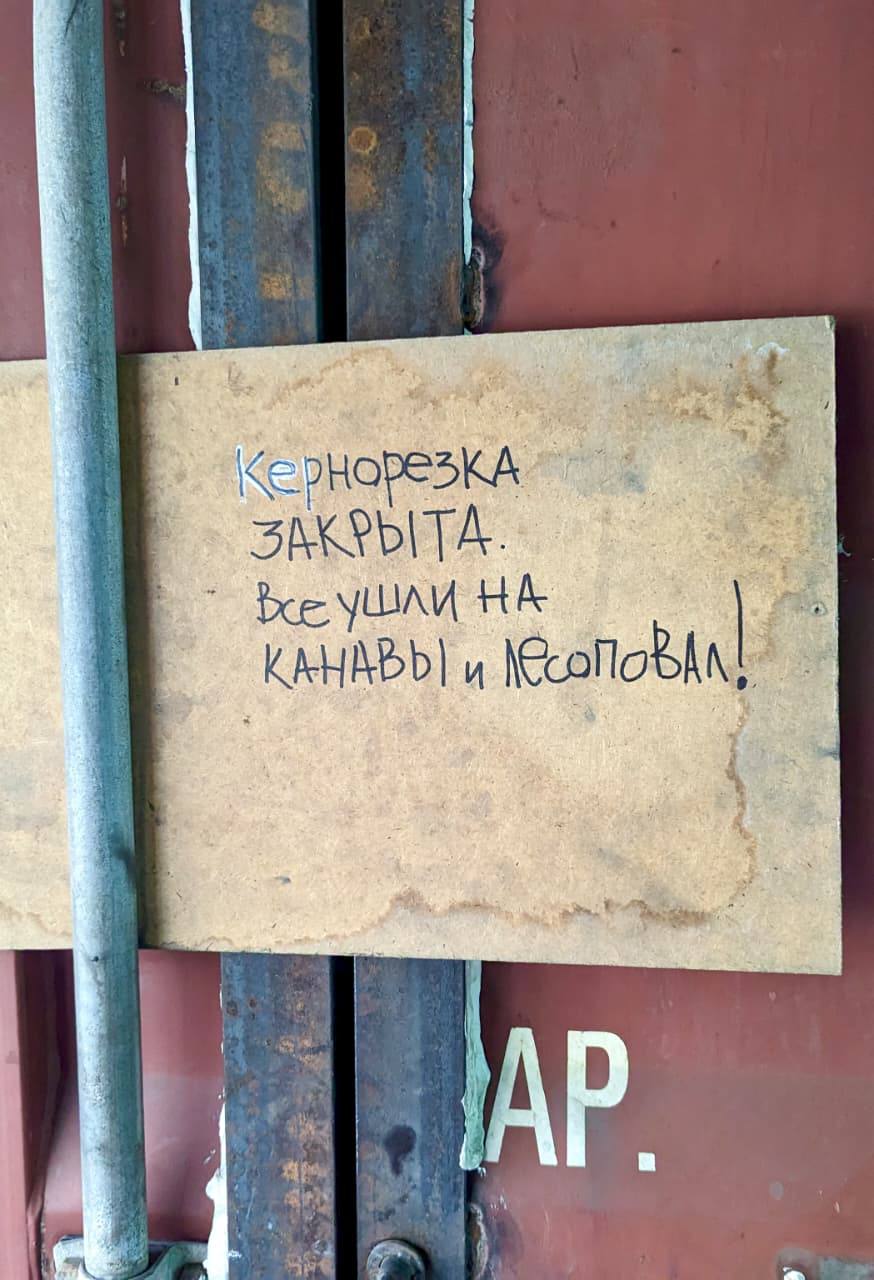 Кернорезка
ЗАКРЫТА.
Все ушли на
КАНАВЫ и лесоповал!
АР.